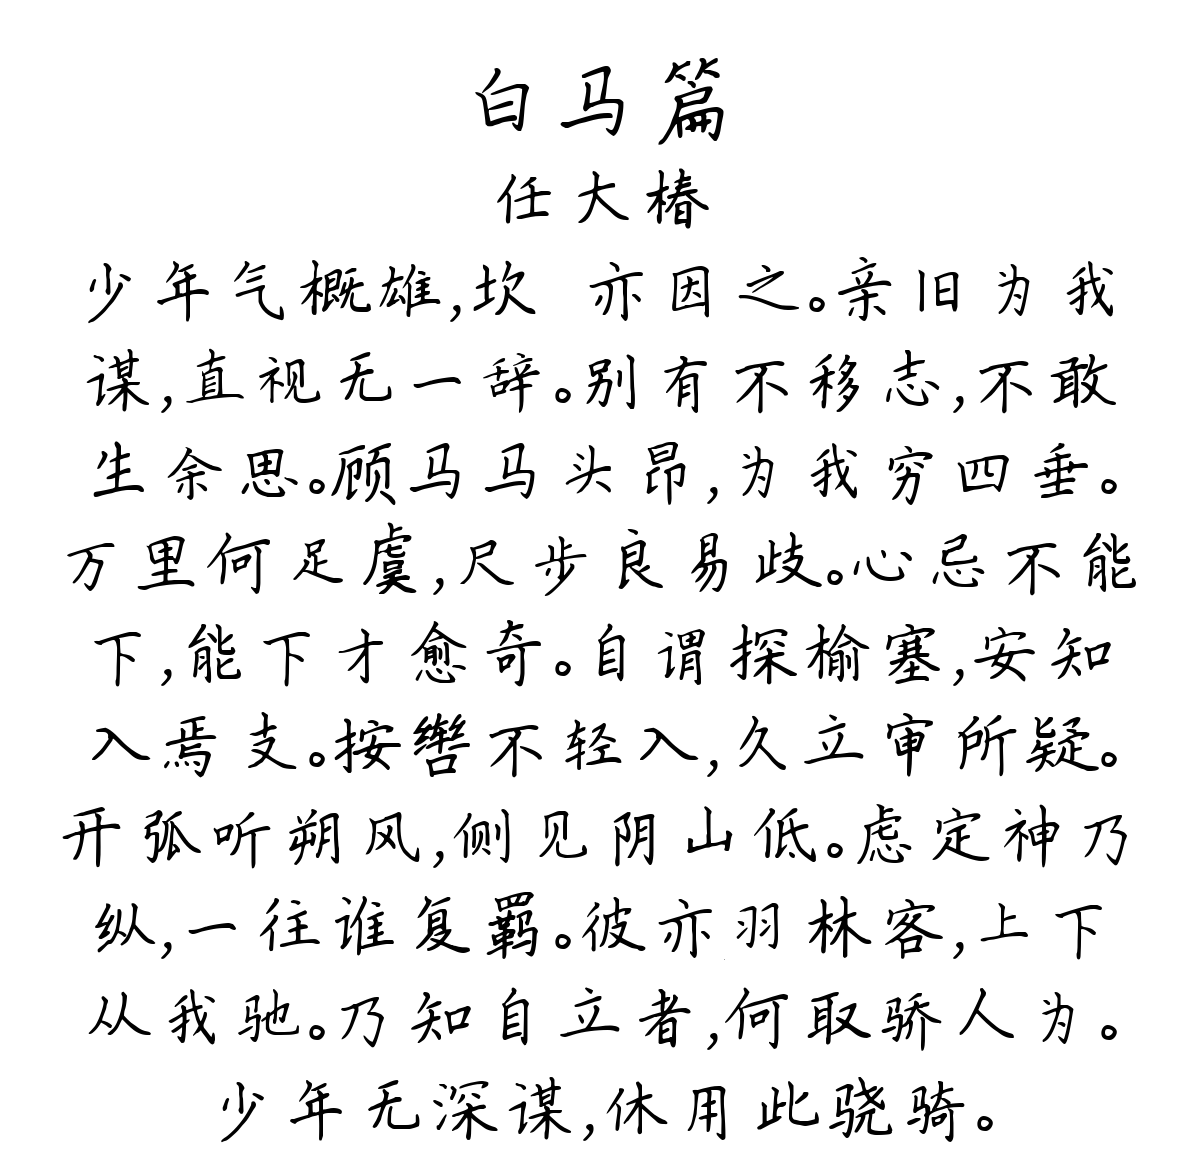 白马篇
任大椿
少年气概雄,坎 亦因之。亲旧为我
谋,直视无一辞。别有不移志,不敢
生余思。顾马马头昂,为我穷四垂。
万里何足虞,尺步良易歧。心忌不能
下,能下才愈奇。自谓探榆塞,安知
入焉支。按辔不轻入,久立审所疑。
开弧听朔风,侧见阴山低。虑定神乃
纵,一往谁复羁。彼亦羽林客,上下
从我驰。乃知自立者,何取骄人为。
少年无深谋,休用此骁骑。